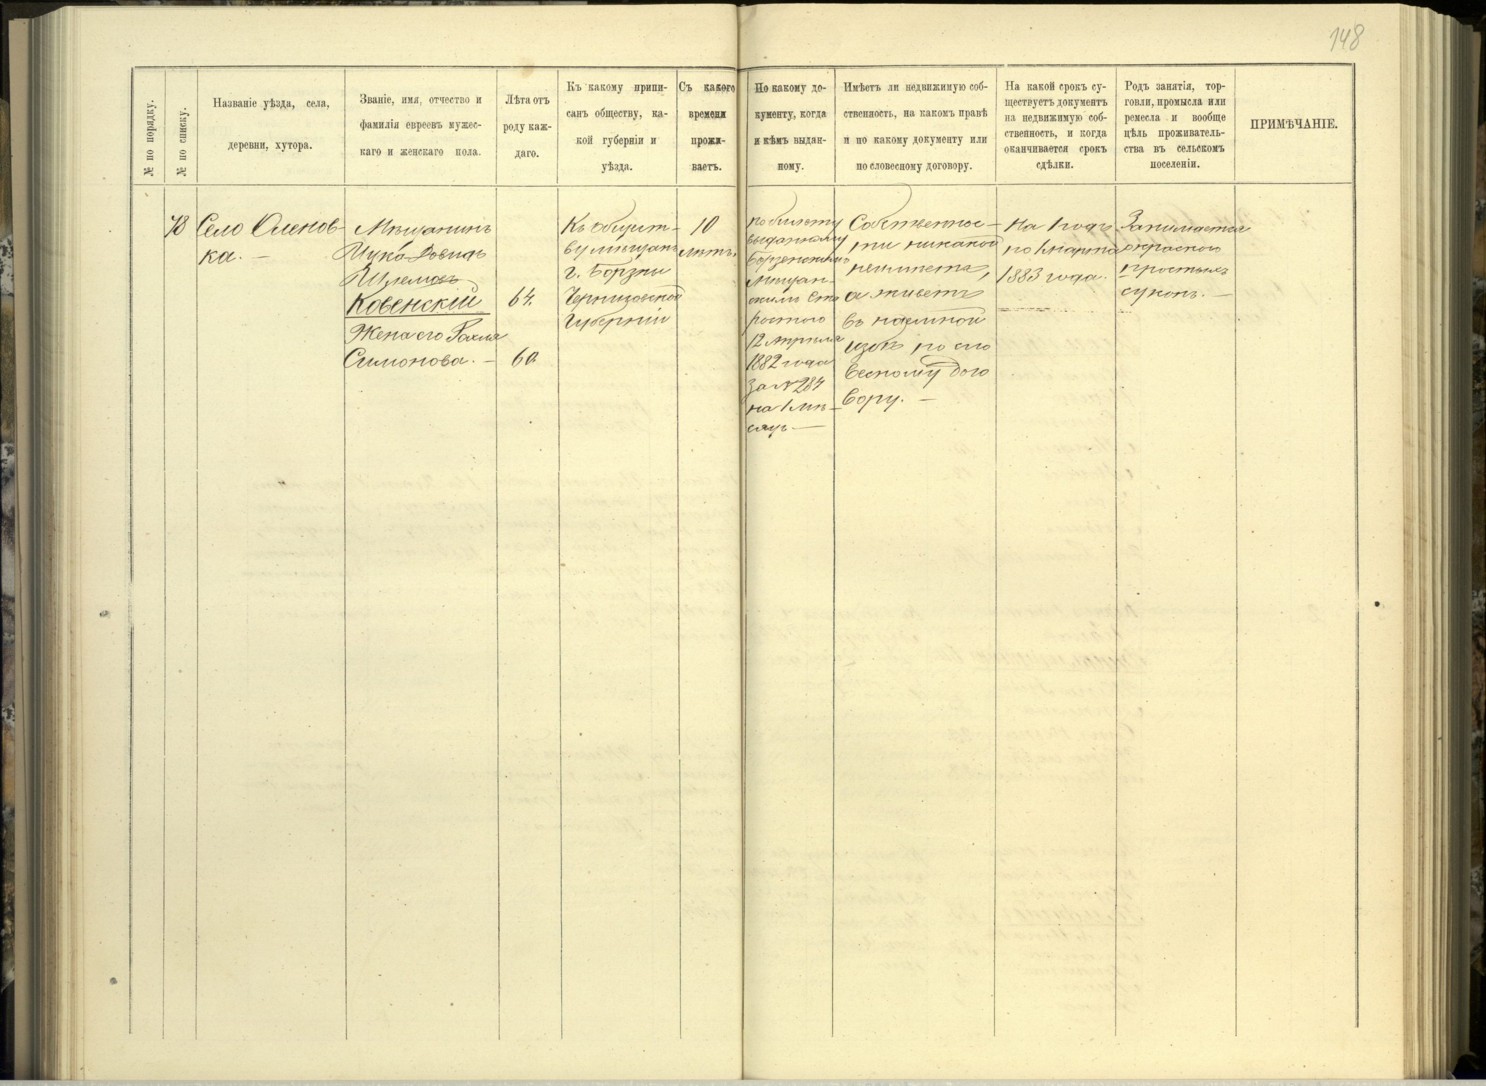 148
№ по порядку.
№ по списку.
Названіе уѣзда, села,
деревни, хутора.
Званіе, имя, отчество и
фамилія евреевъ мужес-
каго и женскаго пола.
Лѣта отъ
роду каж-
даго.
Къ какому припи-
санъ обществу, ка-
кой губерніи и
уѣзда.
Съ какого
времени
прожи-
ваетъ.
По какому до-
кументу, когда
и кѣмъ выдан-
ному.
Имѣетъ ли недвижимую соб-
ственность, на какомъ правѣ
и по какому документу или
по словесному договору.
На какой срокъ су-
ществуетъ документъ
на недвижимую соб-
ственность, и когда
оканчивается срокъ
сдѣлки.
Родъ занятія, тор-
говли, промысла или
ремесла и вообще
цѣль проживатель-
ства въ сельскомъ
поселеніи.
ПРИМѢЧАНІЕ.
Село Оленов-
ка. —
Мѣщанинъ
Довидъ
Шлемовъ
Ковенскій
Жена его Рахля
Симонова. —
64.
60.
Къ общест-
ву мѣщанъ
г. Борзны
Черниговской
Губерніи
10
лѣтъ.
по билету
выданному
Борзенскимъ
мѣщан-
скимъ Ста
ростою
12 апрѣля
1882 года
за № 284
на 1 мѣ-
сяцъ —
Собственнос-
ти никакой
неимѣетъ,
а живетъ
въ наемной
избѣ по сло
весному дого
вору. —
На 1 годъ
по 1 марта
1883 года.
Занимается
окраскою
простыхъ
суконъ. —